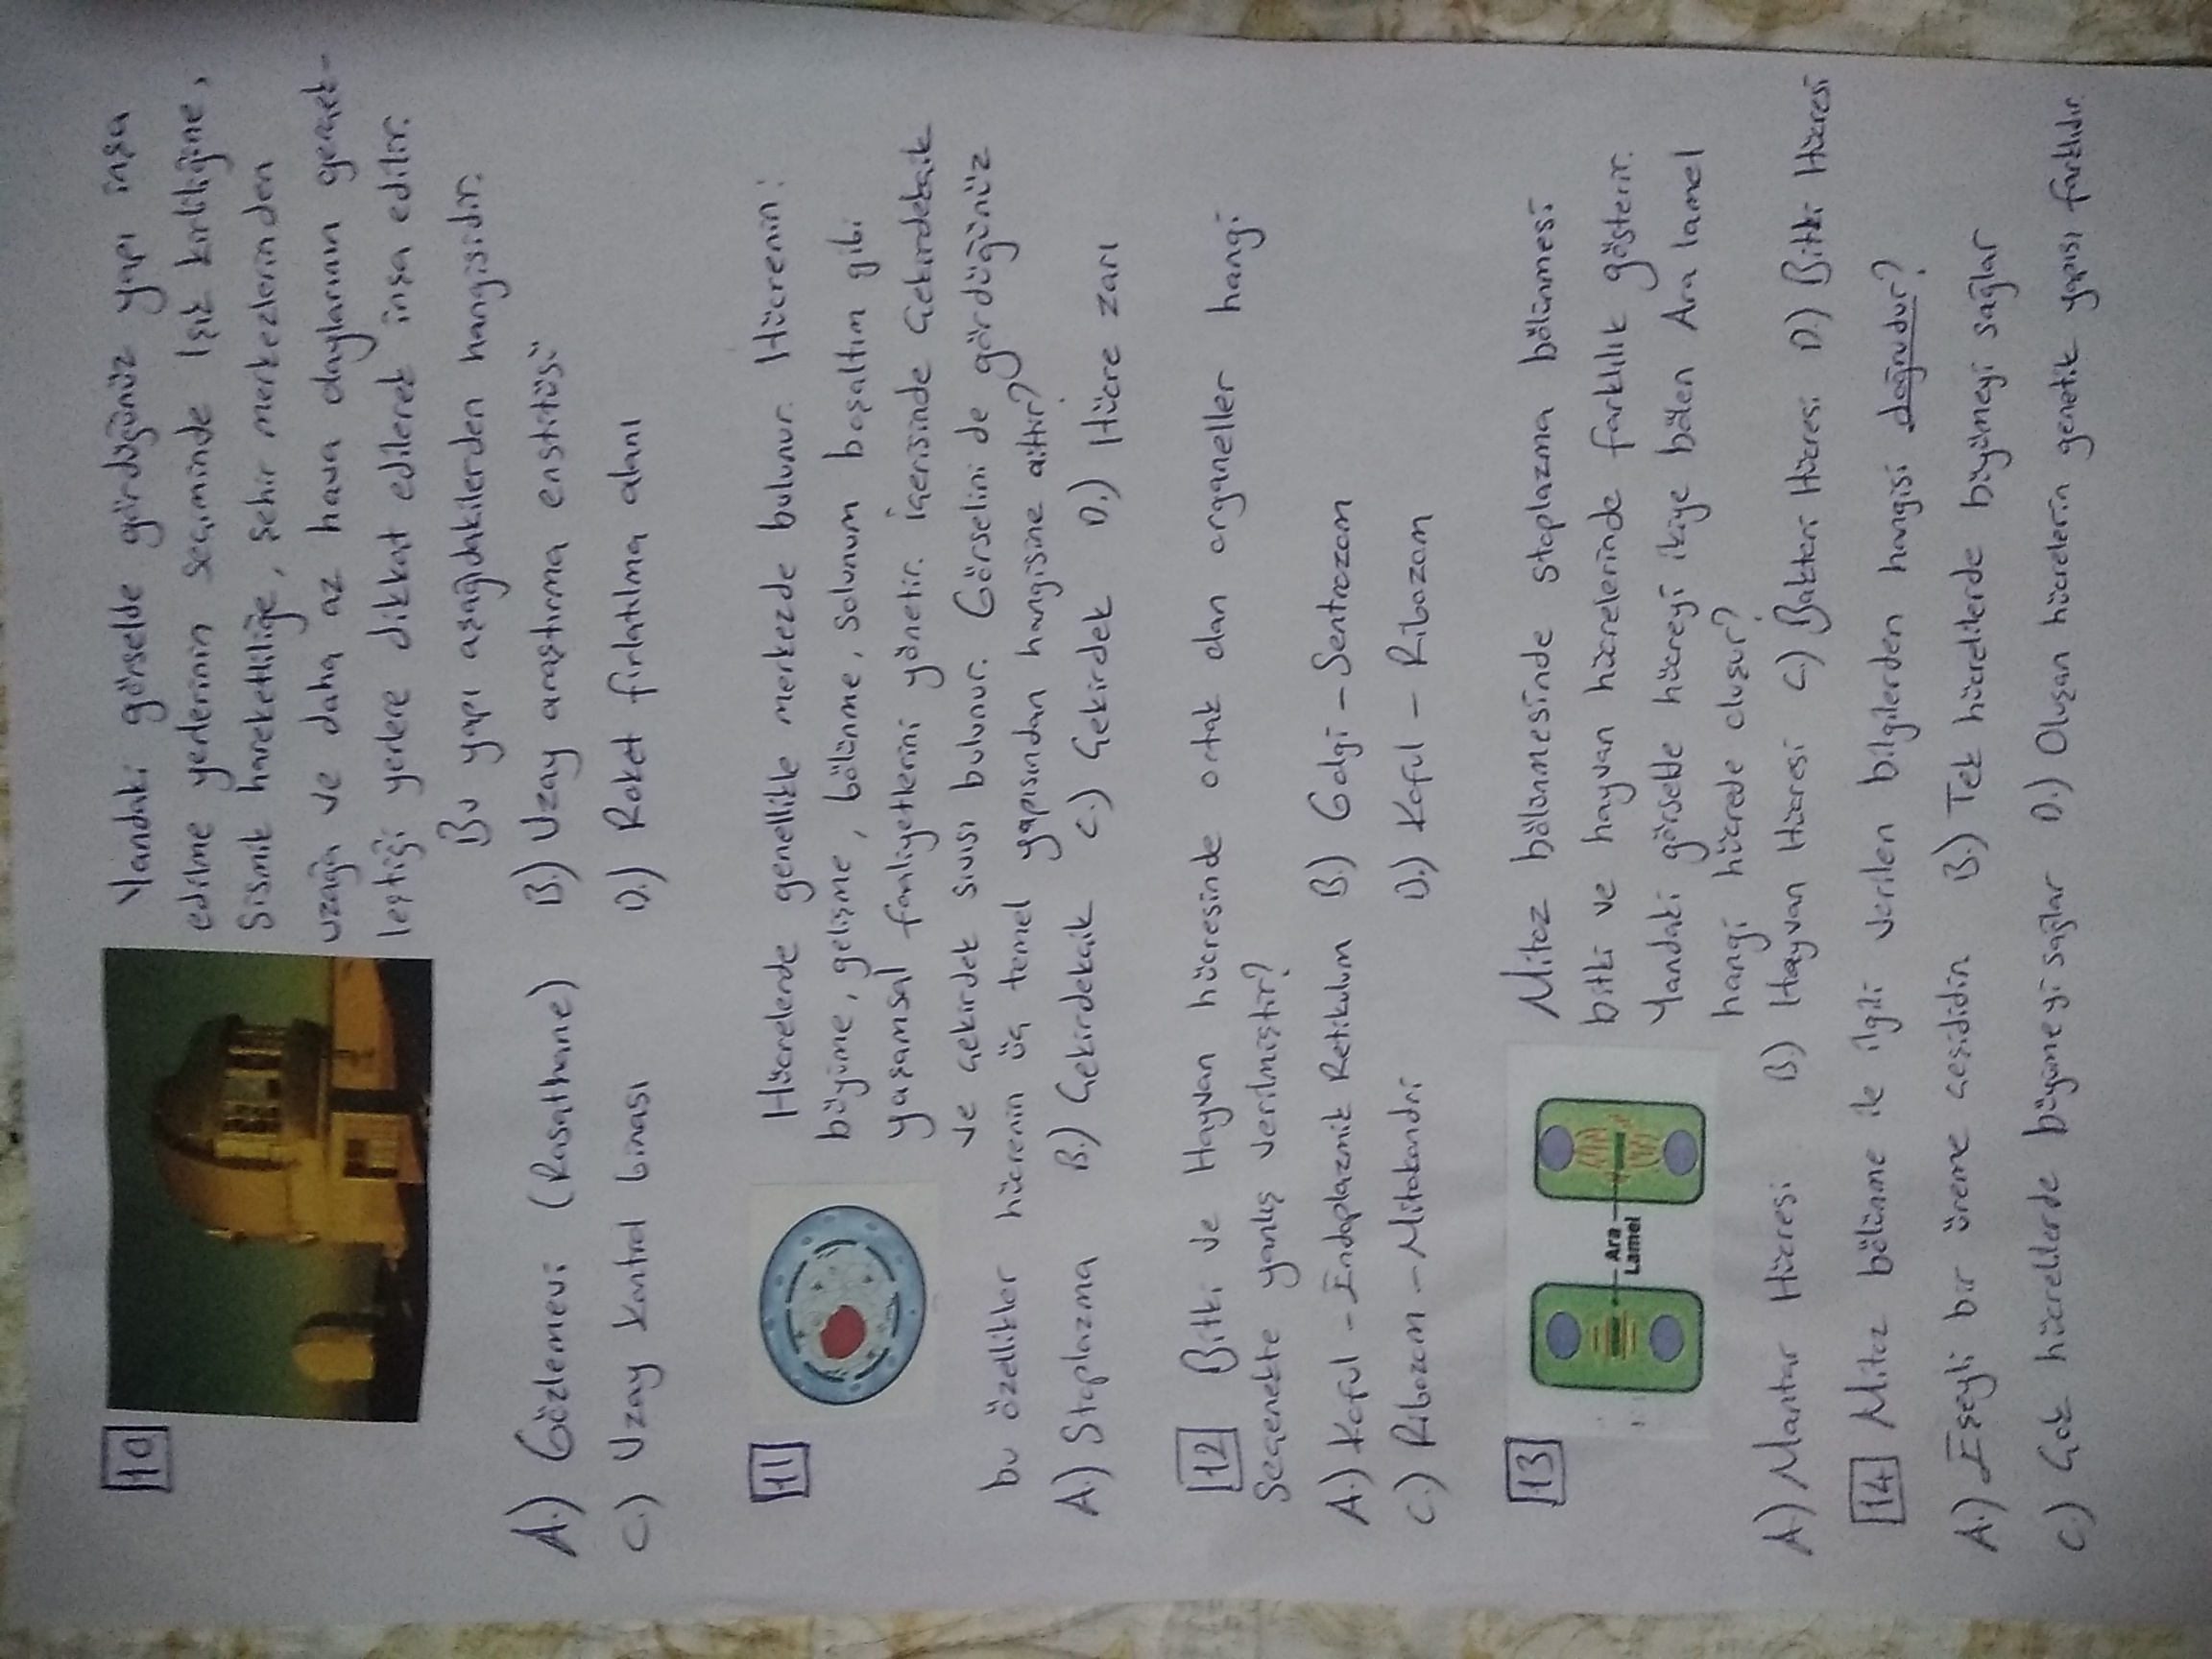 10
Yandaki görselde gördüğünüz yapı inşa
edilme yerlerinin seçiminde Işık kirliliğine,
Sismik hareketliliğe, şehir merkezlerinden
uzağa ve daha az hava olaylarının gerçek-
leştiği yerlere dikkat edilerek inşa edilir.
Bu yapı aşağıdakilerden hangisidir.
A.) Gözlemevi (Rasathane) B.) Uzay araştırma enstitüsü
C.) Uzay kontrol binası D.) Roket fırlatılma alanı
11
Hücrelerde genellikle merkezde bulunur. Hücrenin:
büyüme, gelişme, bölünme, solunum boşaltım gibi
yaşamsal faaliyetlerini yönetir. içerisinde Çekirdekçik
ve çekirdek sıvısı bulunur. Görselini de gördüğünüz
bu özellikler hücrenin üç temel yapısından hangisine aittir?
A.) Stoplazma B.) Çekirdekçik C.) Çekirdek D.) Hücre zarı
12 Bitki ve Hayvan hücresinde ortak olan organeller hangi
Seçenekte yanlış verilmiştir?
A.) Koful - Endoplazmik Retikulum B.) Golgi - Sentrozom
C.) Ribozom - Mitokondri D.) Koful - Ribozom
13
Mitoz bölünmesinde stoplazma bölünmesi
bitki ve hayvan hücrelerinde farklılık gösterir.
Yandaki görselde hücreyi ikiye bölen Ara lamel
hangi hücrede oluşur?
Ara
Lamel
A.) Mantar Hücresi B) Hayvan Hücresi C) Bakteri Hücresi D.) Bitki Hücresi
14 Mitoz bölünme ile ilgili verilen bilgilerden hangisi doğrudur?
A.) Eşeyli bir üreme çeşididir. B.) Tek hücrelilerde büyümeyi sağlar
C.) Çok hücrelilerde büyümeyi sağlar D.) Oluşan hücrelerin genetik yapısı farklıdır.